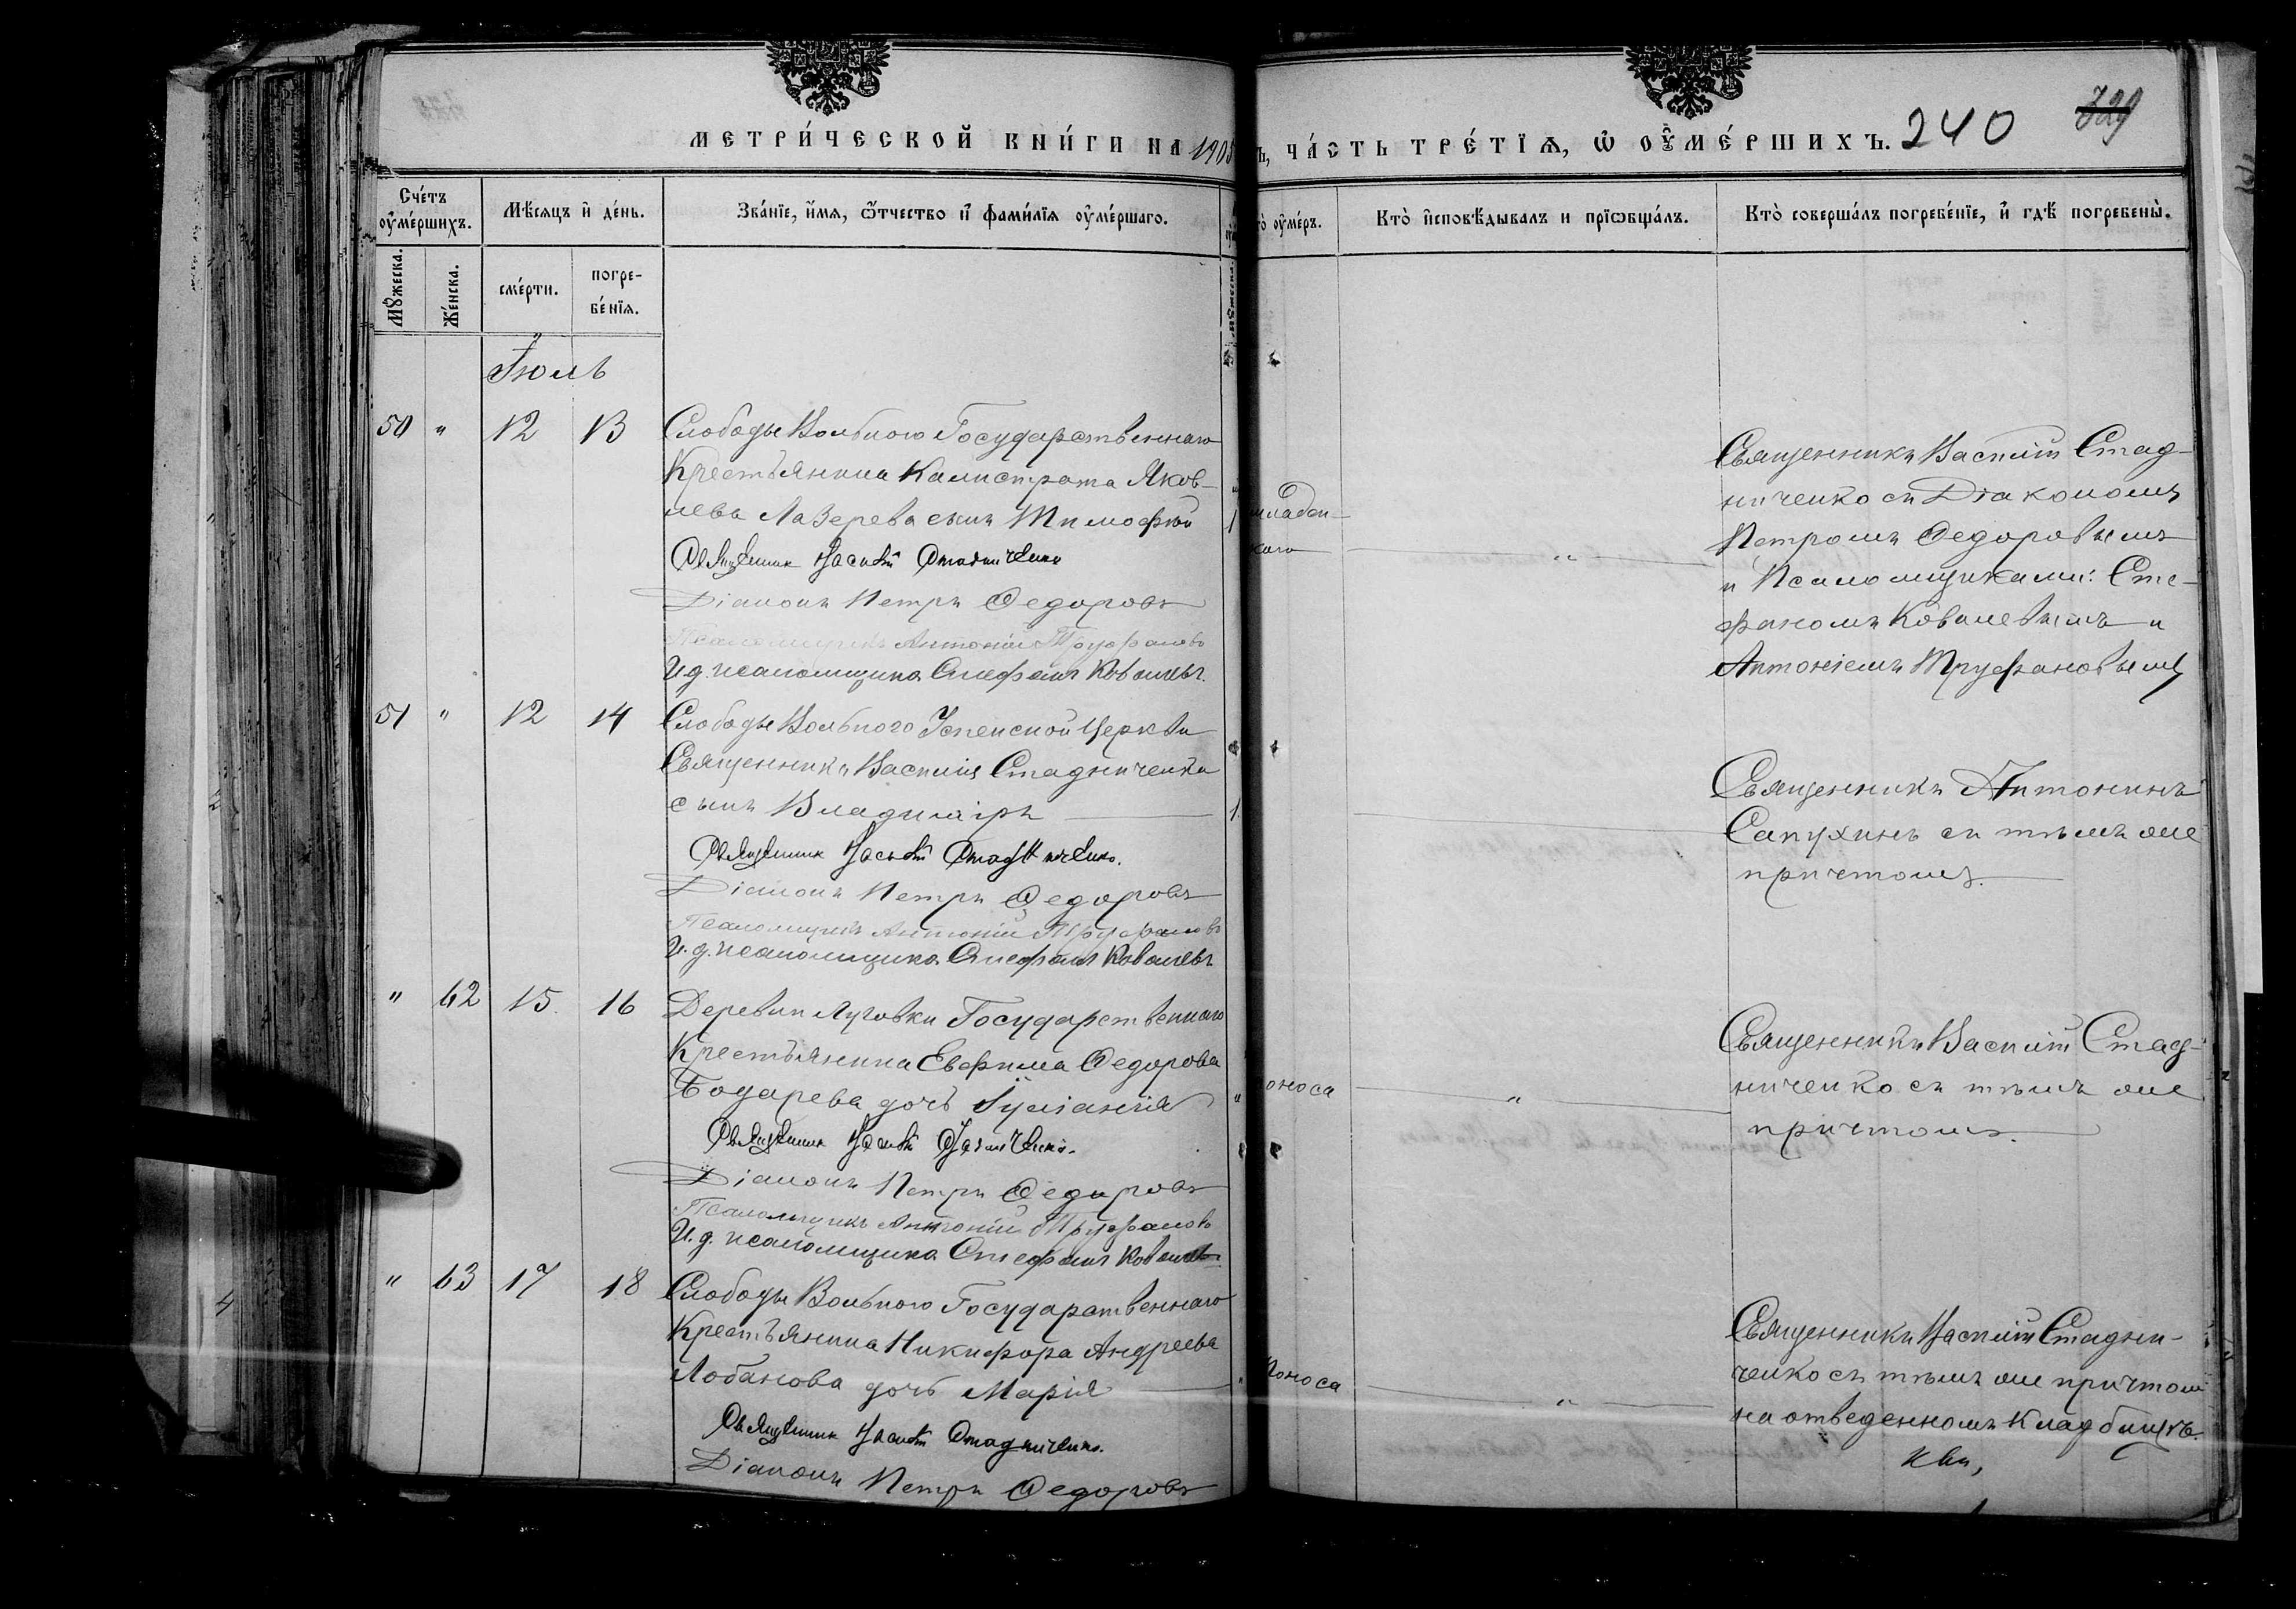 МЕТРИ́ЧЕСКОЙ КНИ́ГИ НА 1905
Ъ, ЧА́СТЬ ТРЕ́ТІѦ, Ѽ ОУ҆МЕ́РШИХЪ. 240 729
Сче́тъ оу҆ме́ршихъ.
Мѣ́сѧцъ и҆ де́нь.
Зва́нїе, и҆́мѧ, ѻ҆́тчество и҆ фами́лїѧ оу҆ме́ршагѡ.
о оу҆ме́ръ.
Кто̀ и҆сповѣ́дывалъ и прїѡбща́лъ.
Кто̀ соверша́лъ погребе́нїе, и҆ гдѣ̀ погребены̀.
Мꙋ́жеска.
Же́нска.
сме́рти.
погре-
бе́нїѧ.
Іюль
50 " 12 13 Слободы Вольного Государственнаго
Крестьянина Калистрата Яков-
лева Лазерева сынъ Тимофей 1
Священник Василий Стадниченко
Діаконъ Петръ Федоровъ
Псаломщикъ Антоній Труфановъ
И.д. псаломщика Стефанъ Ковалевъ.
младен-
каго "
Священникъ Василій Стад-
ниченко съ Діакономъ
Петромъ Федоровымъ
и Псаломщиками: Сте-
фаномъ Ковалевымъ и
Антоніемъ Труфановымъ
51 " 12 14 Слободы Вольного Успенской Церкви
Священника Василія Стадниченка
сынъ Владиміръ 1.
Священник Василий Стадниченко.
Діаконъ Петръ Федоровъ
Псаломщикъ Антоній Труфановъ
И.д. псаломщика Стефанъ Ковалевъ
Священникъ Антонинъ
Сапухинъ съ тѣмъ же
причтомъ.
" 62 15 16 Деревни Луговки Государственнаго
Крестьянина Евфима Федорова
Бочарева дочь Іуліанія "
Священник Василий Стадниченко.
Діаконъ Петръ Федоровъ
Псаломщикъ Антоній Труфановъ
И.д. псаломщика Стефанъ Ковалевъ
оноса "
Священникъ Василій Стад-
ниченко съ тѣмъ же
причтомъ.
" 63 17 18 Слободы Вольного Государственнаго
Крестьянина Никифора Андреева
Лобанова дочь Марія "
Священник Василий Стадниченко.
Діаконъ Петръ Федоровъ
Поноса "
Священникъ Василій Стадни-
ченко съ тѣмъ же причтом
на отведенномъ Кладбищѣ.